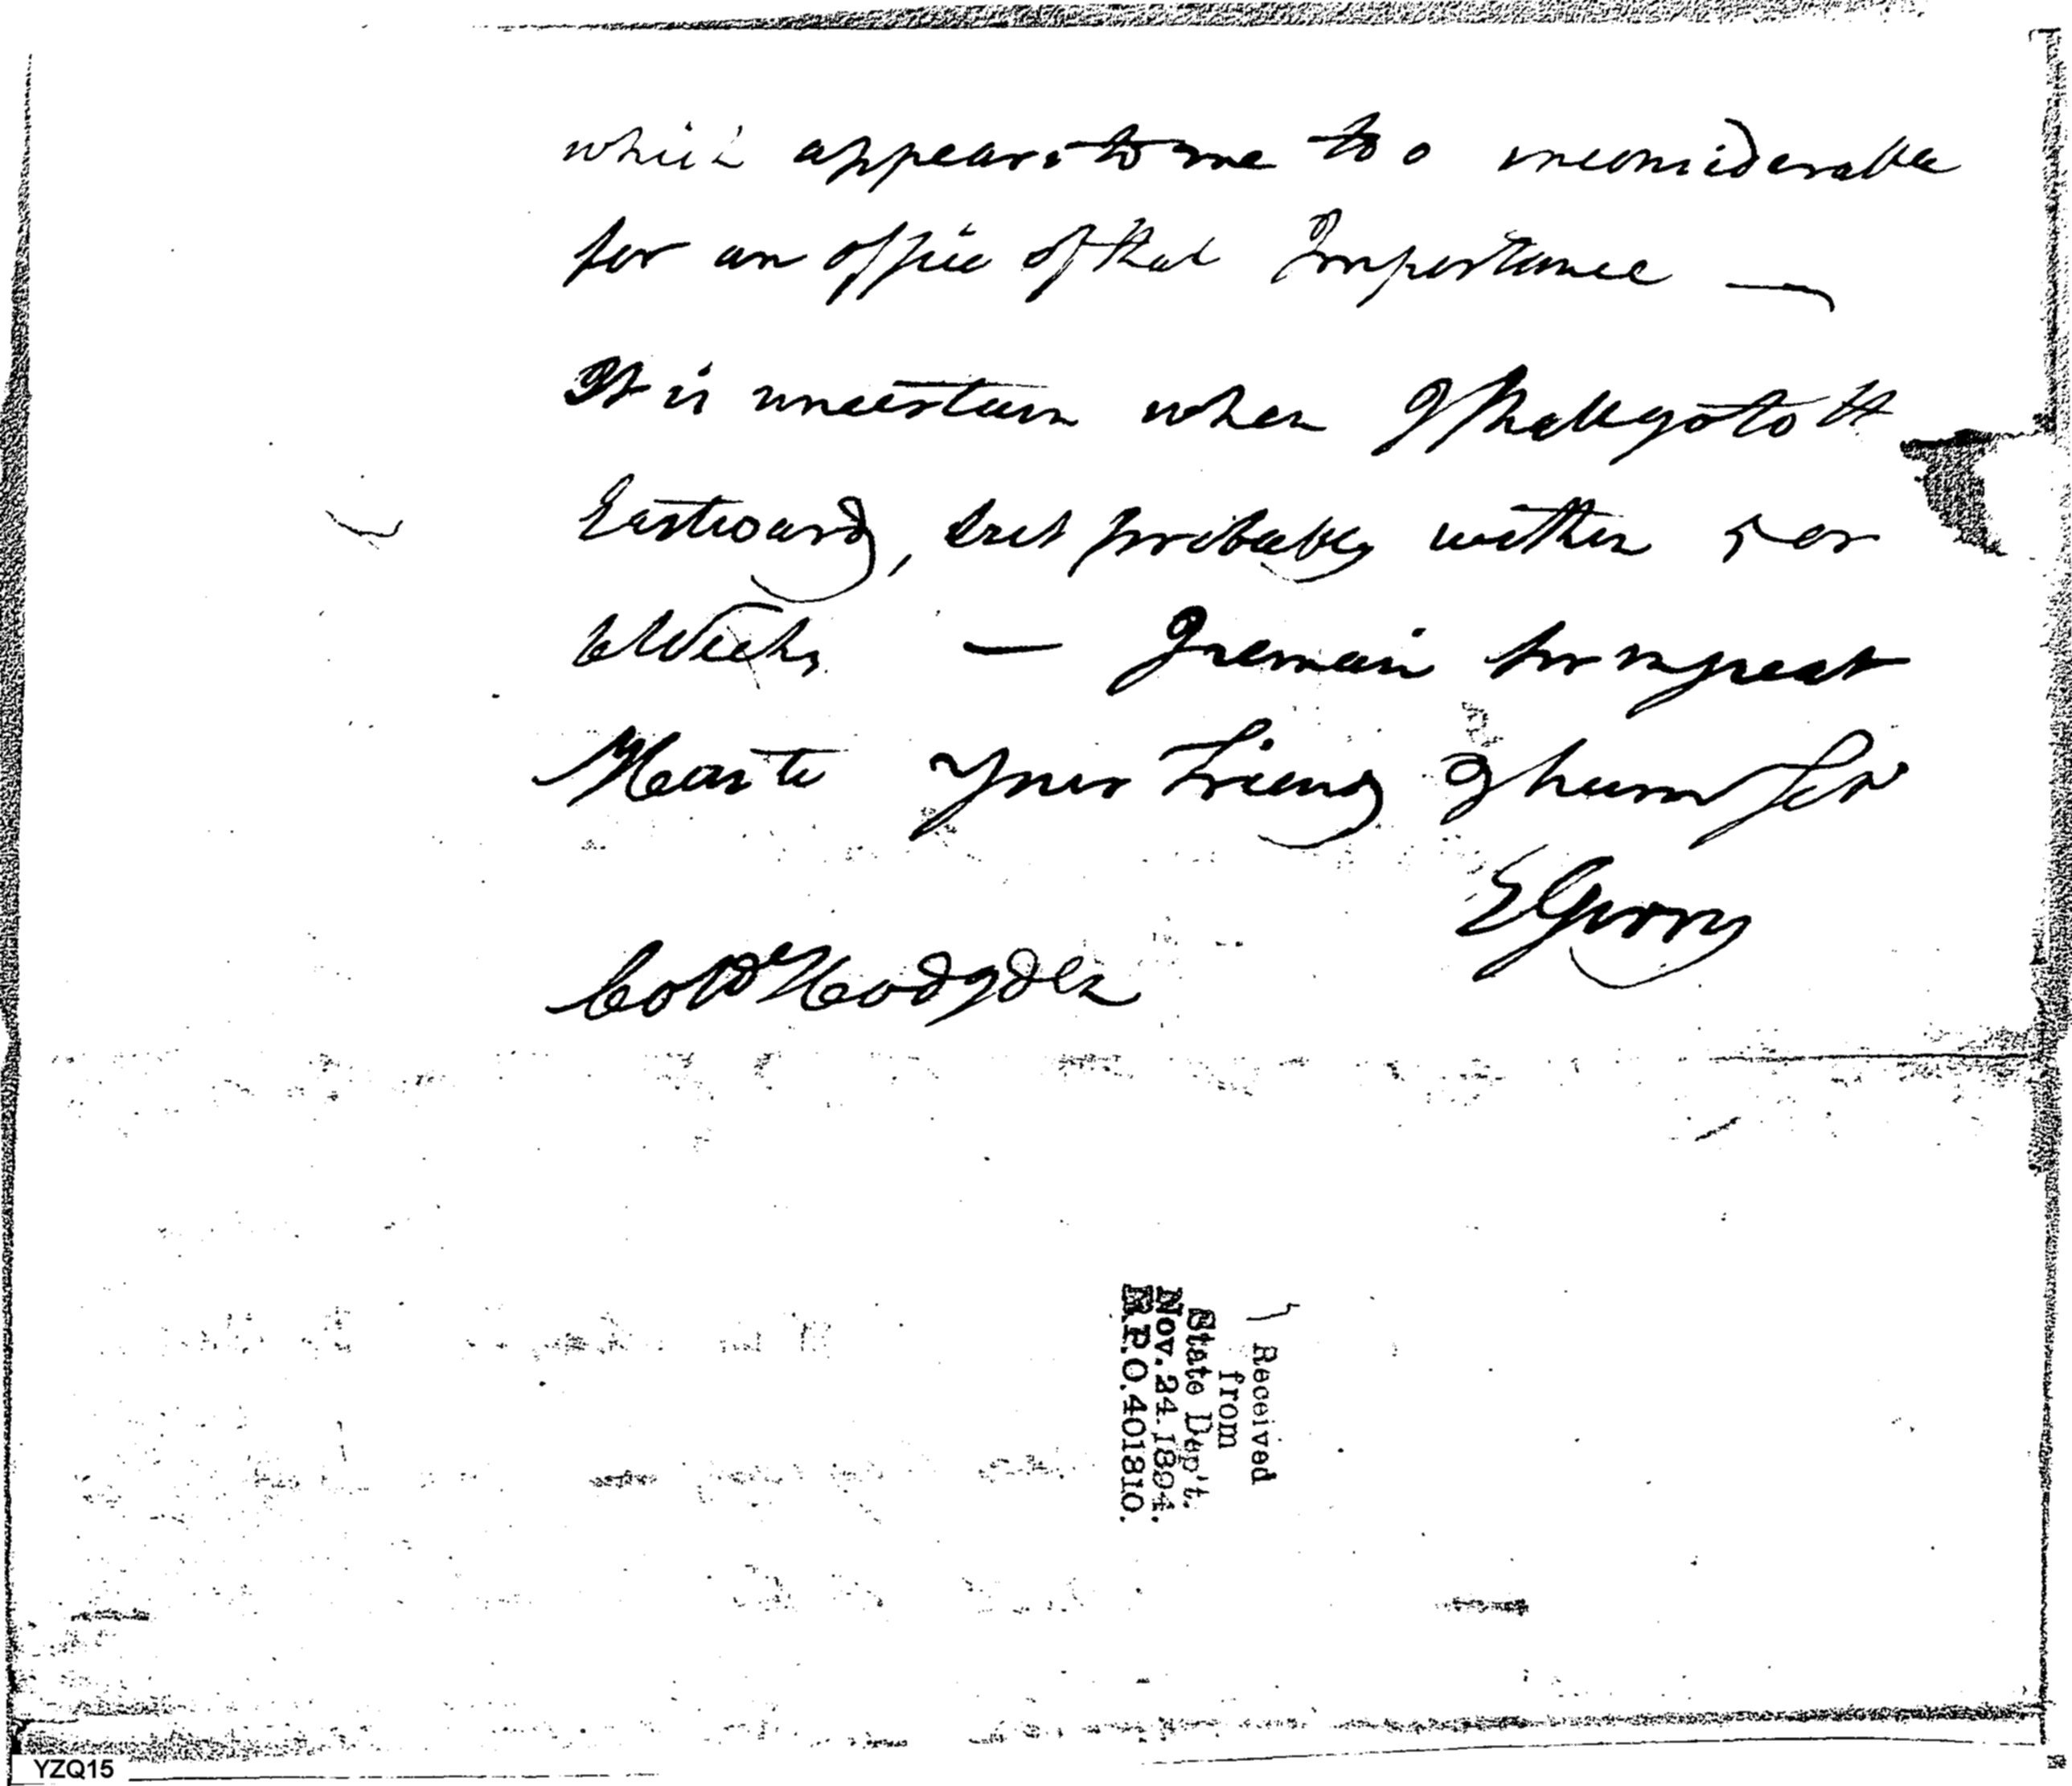 which appears to me too inconsiderable
for an office of that Importance —
It is uncertain when I shall go to the
Eastward, but probably within 5 or
6 Weeks — I remain Sir
Your Friend & hum Ser
E Gerry
Colo Hodgdon
Received
from
State Dep't.
Nov. 24. 1894.
R.P.O. 401810.
YZQ15